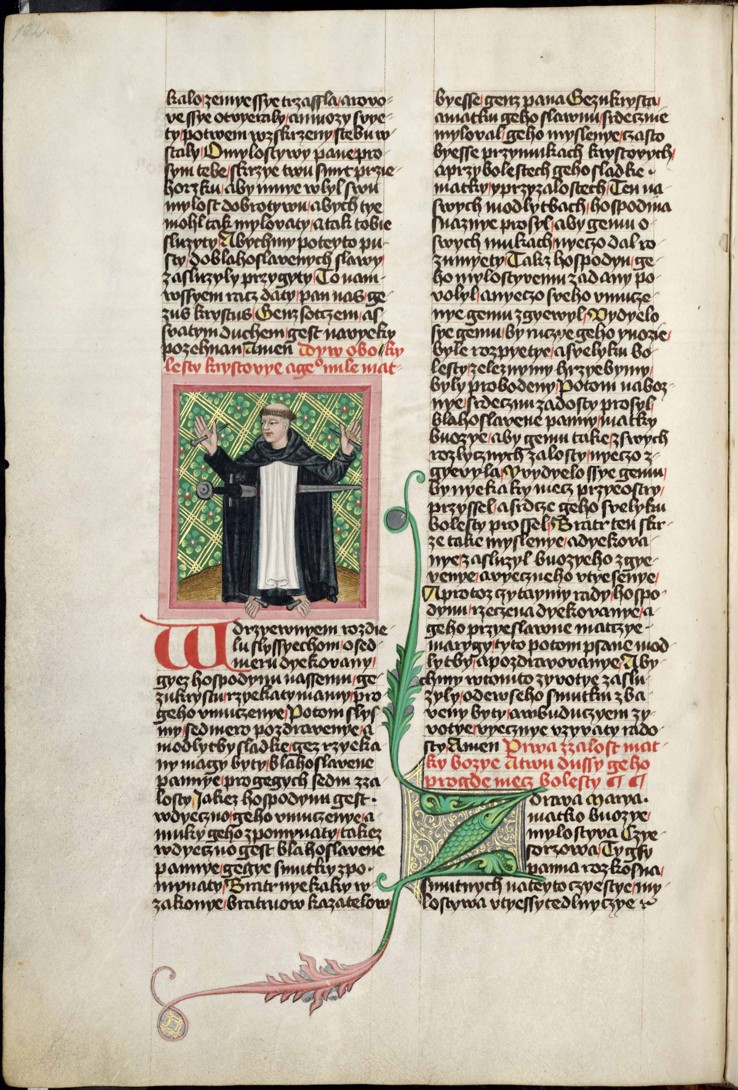 kalo zemye ssye trzassla arovo-
ve ssye otvyeraly amnozy svye-
ty potwem wzkrzeny ste bu w-
staly Omylostywy pane pro-
sym tebe skrzye twu smrt przie-
horzku aby mnye wlyl swu
mylost dobrotywu abych tye
mohl tak mylovaty a tak tobie
sluzyty Abychmy poteyto pu-
sty doblahoslavenych slawy
zasluzyly przygyty To nam-
wssyem racz daty pan nas ge-
zus krystus Genz sotczem as
svatym duchem gest navyeky
pozehnan Amen
lesty krystovye ageo mile mat-
W drzyewnyem rozdie-
lu slyssyechom osed-
meru dyekovany
gyez hospodynu nassemu ge-
zukrystu rzyekaty mamy pro
geho umuczenye Potom slys
my sedmero pozdravenye a
modlytby sladke gez rzyeka
ny magy byty blahoslavene
pannye pro gegych sedm zza
losty Jakez hospodynu gest
wdyeczno geho umuczenye a
muky geho zpomynaty takez
wdyeczno gest blahoslavene
pannye gegye smutky zpo-
mynaty Bratr nyekaky w-
zakonye bratruow kazatelow
byesse genz pana Gezukrysta
amatku geho slawnu srdecznie
myloval geho myslenye czasto
byesse przymukach krystovych
a przy bolestech geho sladke
matky yprzyzalostech Ten na
swych modlytbach hospodina
snaznye prosyl aby gemu o
swych mukach nyeczo dal ro
zumyety Takz hospodyn ge-
ho mylostyvemu zadany po
volyl anyeczo sveho umucze-
nye gemu zgyewyl Vydyelo
sye gemu by ruczye geho ynozie
byle rozpyetye asvelyku bo-
lesty zeleznymy hrzyebymy
byly probodeny Potom naboz-
nye srdecznu zadosty prosyl
blahoslavene panny matky
buozye aby gemu take zswych
rozlycznych zalosty nyeczo z-
gyevyla Vvydyelo ssye gemu
by nyekaky mecz przyeostry
przyssel a srdcze geho svelyku
bolesty prossel Bratr ten skr-
ze take myslenye adyekova-
nye zasluzyl buozyeho zgye-
venye avyeczneho utyessenye
A protoz cztaymy rady hospo-
dynu rzeczena dyekovanye a
geho przyeslawne matczye
marygy tyto potom psane mod
lytby apozdravovanye Aby
chmy wtomto zyvotye zaslu
zyly odewseho smutku zba
veny byty a wbuduczyem zy
votye vyecznye uzyvaty rado
sty Amen Prwa zzalost mat-
ky bozye Atwu dussy geho
progde mecz bolesty
Zdrava marya
matko buozye
mylostyva Czye-
sorzowa Ty gsy
panna rozkosna
smutnych nateyto czyestye my
lostywa utyessytedlnyczye